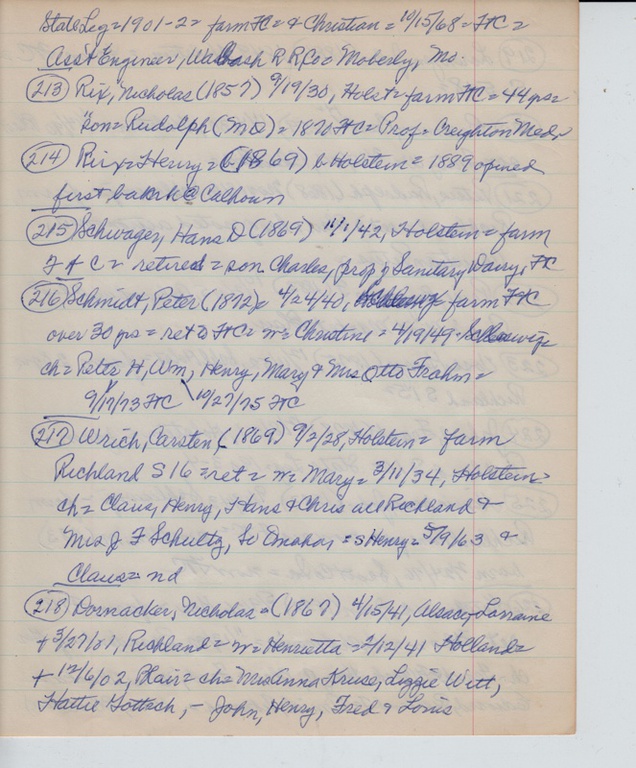 State Leg = 1901-2 = farm FC = & Christian = 10/15/68 = FC =
Asst Engineer, Wabash R R Co = Moberly, Mo.
(213) Rix, Nicholas (1857) 9/19/30, Holst = farm FC = 44 yrs =
Son = Rudolph (MD) = 1870 FC = Prof = Creighton Med.
(214) Rix = Henry = (1869) b Holstein = 1889 opened
first bank @ Calhoun
(215) Schwager, Hans D (1869) 11/1/42, Holstein = farm
F & C = retired = son Charles, prop y Sanitary Dairy, FC
(216) Schmidt, Peter (1872) = 4/24/40, farm FC
over 30 yrs = ret to FC = w = Christine = 4/19/49 - Schleswig
ch = Peter H, Wm, Henry, Mary & Mrs Otto Frahm =
9/17/73 FC 10/27/75 FC
(217) Wrich, Carsten, (1869) 9/2/28, Holstein = farm
Richland S 16 = ret = w = Mary = 3/11/34, Holstein =
ch = Claus, Henry, Hans & Chris all Richland &
Mrs J F Schultz, So Omaha = s Henry = 5/9/63 &
Claus = nd
(218) Dornacker, Nicholas = (1867) 4/15/41, Alsace Lorraine
+ 3/27/01, Richland = w = Henrietta = 2/12/41 Holland =
+ 12/6/02, Blair = ch = Mrs Anna Kruse, Lizzie Witt,
Hattie Gottsch, - John, Henry, Fred & Louis